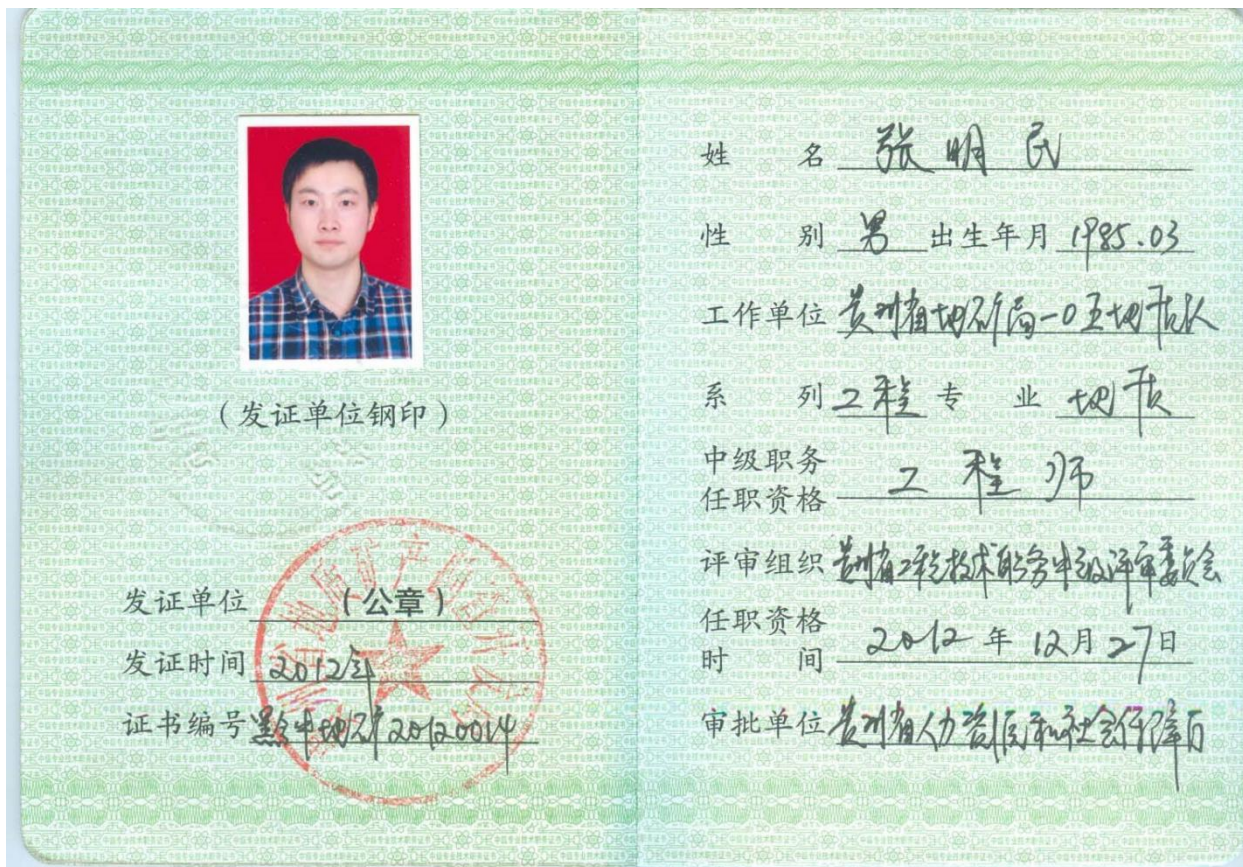 (发证单位钢印)
发证单位 (公章)
发证时间 2012年
证书编号 黔中地矿20120014
姓名 张明民
性别 男 出生年月 1985.03
工作单位 贵州省地矿局一0五地质队
系列 工程 专业 地质
中级职务
任职资格 工程师
评审组织 贵州省工程技术职务中级评审委员会
任职资格
时间 2012年12月27日
审批单位 贵州省人力资源和社会保障厅